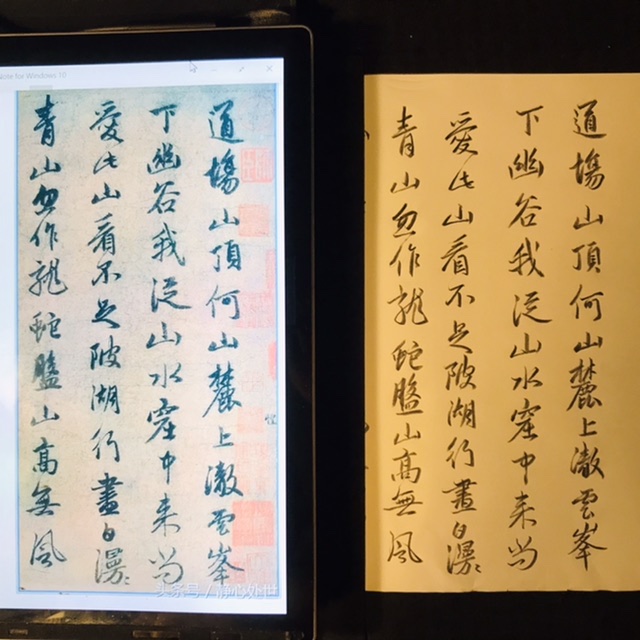 Note for Windows 10
道塲山頂何山麓上澈雲峯
下幽谷我從山水窟中来尚
愛此山看不足陂湖行盡白漫〻
青山忽作龍蛇盤山高無風
头条号 / 静心处世
道塲山頂何山麓上澈雲峯
下幽谷我從山水窟中来尚
愛此山看不足陂湖行盡白漫〻
青山忽作龍蛇盤山高無風